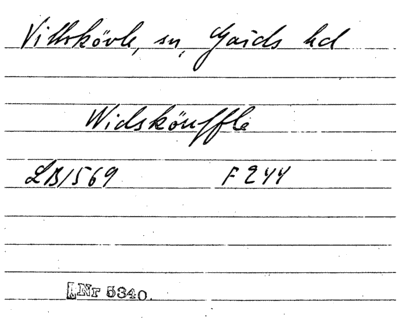 Vittskövle, sn, Gärds hd
Widsköuffle
LB 1569 F 244
Nr 5340.